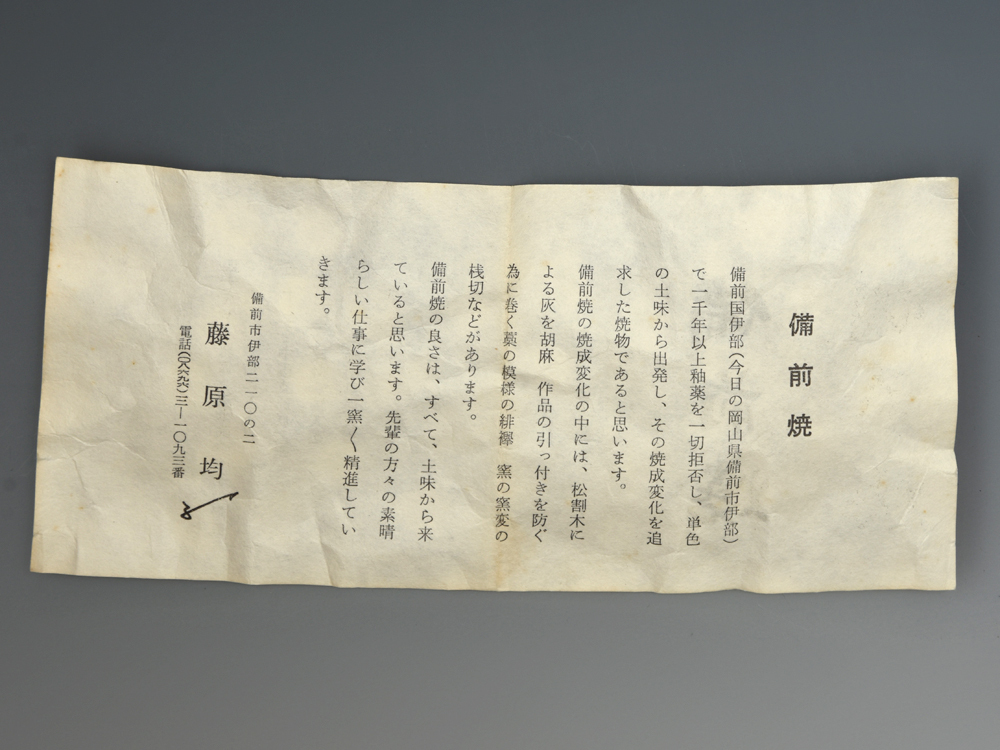 備前焼
備前国伊部(今日の岡山県備前市伊部)
で一千年以上釉薬を一切拒否し、単色
の土味から出発し、その焼成変化を追
求した焼物であると思います。
備前焼の焼成変化の中には、松割木に
よる灰を胡麻　作品の引っ付きを防ぐ
為に巻く藁の模様の緋襷　窯の窯変の
桟切などがあります。
備前焼の良さは、すべて、土味から来
ていると思います。先輩の方々の素晴
らしい仕事に学び一窯〱精進してい
きます。
備前市伊部二一一〇の二
藤原均
電話(〇八六九六)三—一〇九三番